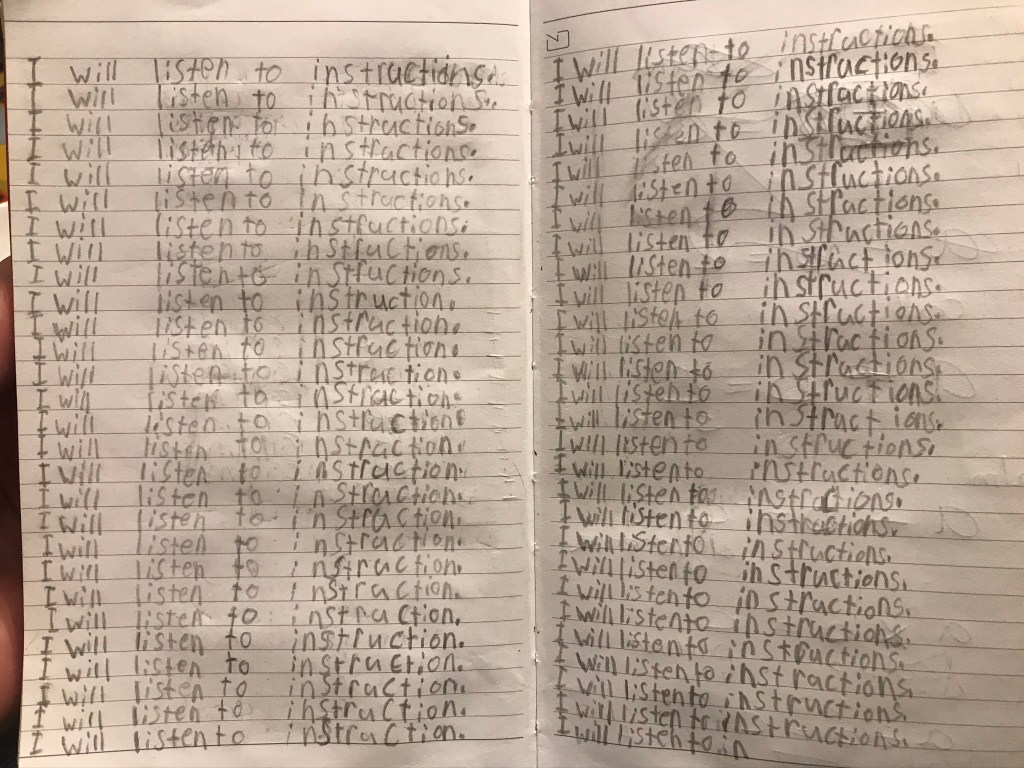 I will listen to instructions.
I will listen to instructions.
I will listen to instructions.
I will listen to instructions.
I will listen to instructions.
I will listen to instructions.
I will listen to instructions.
I will listen to instructions.
I will listen to instructions.
I will listen to instruction.
I will listen to instruction.
I will listen to instruction.
I will listen to instruction.
I will listen to instruction.
I will listen to instruction.
I will listen to instruction.
I will listen to instruction.
I will listen to instruction.
I will listen to instruction.
I will listen to instruction.
I will listen to instruction.
I will listen to instruction.
I will listen to instruction.
I will listen to instruction.
I will listen to instruction.
I will listen to instruction.
I will listen to instruction.
I will listen to instruction.
I will listen to instructions.
I will listen to instructions.
I will listen to instructions.
I will listen to instructions.
I will listen to instructions.
I will listen to instructions.
I will listen to instructions.
I will listen to instructions.
I will listen to instructions.
I will listen to instructions.
I will listen to instructions.
I will listen to instructions.
I will listen to instructions.
I will listen to instructions.
I will listen to instructions.
I will listen to instructions.
I will listen to instructions.
I will listen to instructions.
I will listen to instructions.
I will listen to instructions.
I will listen to instructions.
I will listen to instructions.
I will listen to instructions.
I will listen to instructions.
I will listen to instructions.
I will listen to instructions.
I will listen to instructions.
I will listen to in